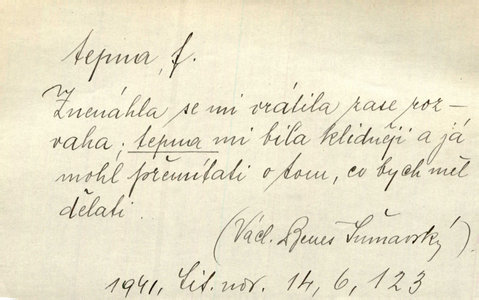 tepna, f.
Znenáhla se mi vrátila zase roz-
vaha; tepna mi bila klidněji a já
mohl přemítati o tom, co bych měl
dělati.
(Václ. Beneš Šumavský).
1941, Lit. nov. 14, 6, 123